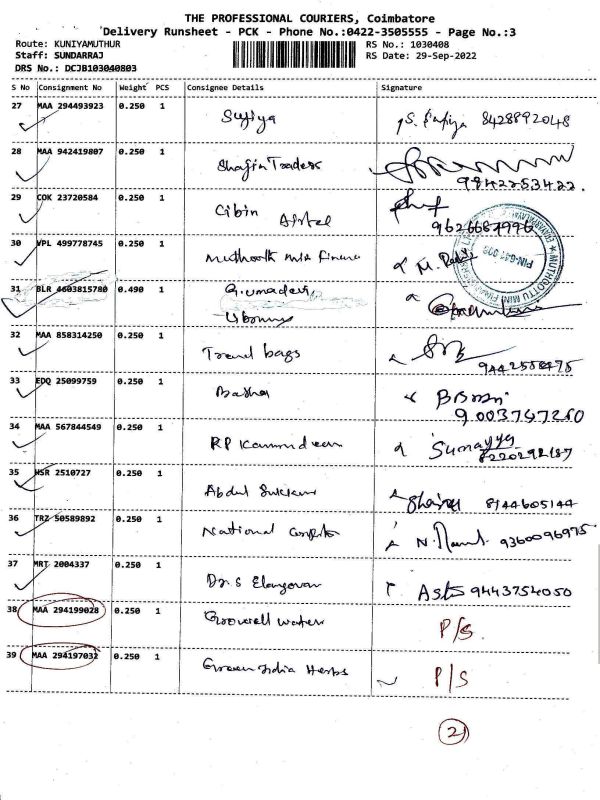 THE PROFESSIONAL COURIERS, Coimbatore
Delivery Runsheet - PCK - Phone No.:0422-3505555 - Page No.:3
Route: KUNIYAMUTHUR RS No.: 1030408
Staff: SUNDARRAJ RS Date: 29-Sep-2022
DRS No.: DCJB103040803
S No Consignment No Weight PCS Consignee Details Signature
27 MAA 294493923 0.250 1 Sufiya S. Safiya 8428892048
28 MAA 942419807 0.250 1 Shafin Traders 9842253422
29 COK 23720584 0.250 1 Cibin Airtel 9626687996
30 VPL 499778745 0.250 1 Muthoottu Mini Finance
31 BLR 4603815780 0.490 1 G.umadevi
32 MAA 858314250 0.250 1 Travel bags
33 EDQ 25099759 0.250 1 Basha 9003767260
34 MAA 567844549 0.250 1 RP Kamurudeen Sumayya 8220292187
35 MSR 2510727 0.250 1 Abdul 8144605144
36 TRZ 50589892 0.250 1 National 9360096975
37 MRT 2004337 0.250 1 Dr.S Elangovan 9443754050
38 MAA 294199028 0.250 1 water P/S
39 MAA 294197032 0.250 1 Green India Herbs P/S